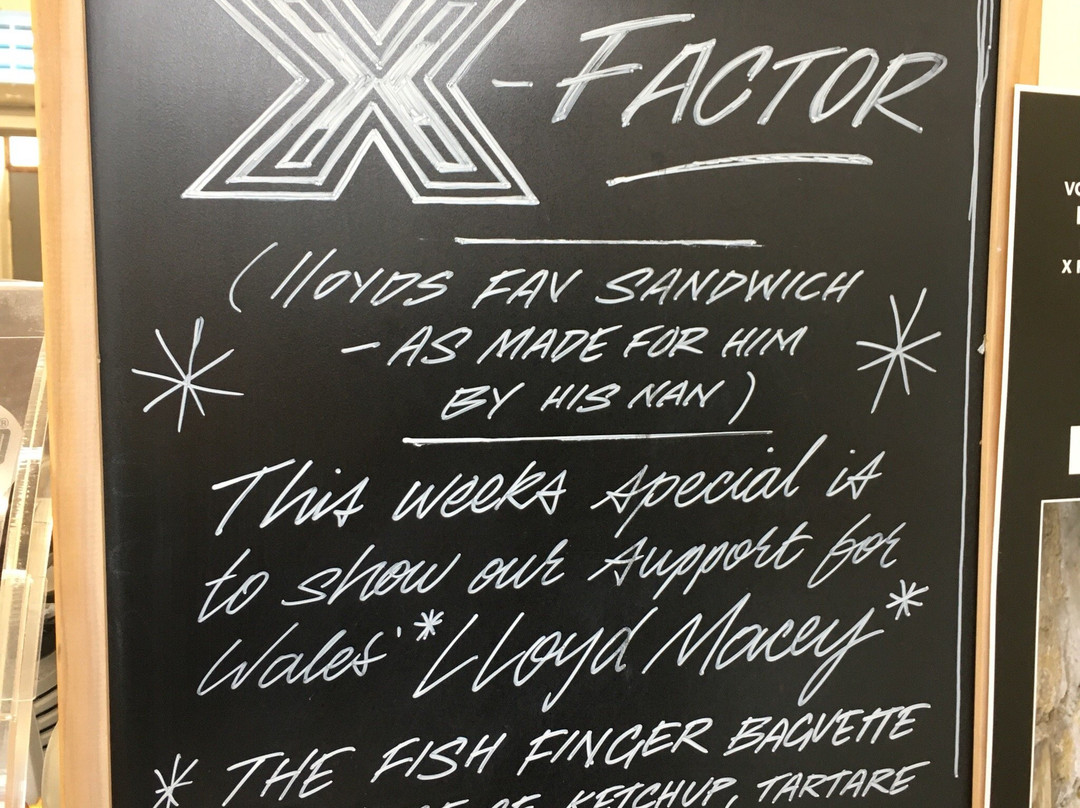 X-FACTOR
(LLOYDS FAV SANDWICH
- AS MADE FOR HIM
BY HIS NAN)
This weeks special is
to show our support for
Wales' *LLoyd Macey*
* THE FISH FINGER BAGUETTE
KETCHUP, TARTARE